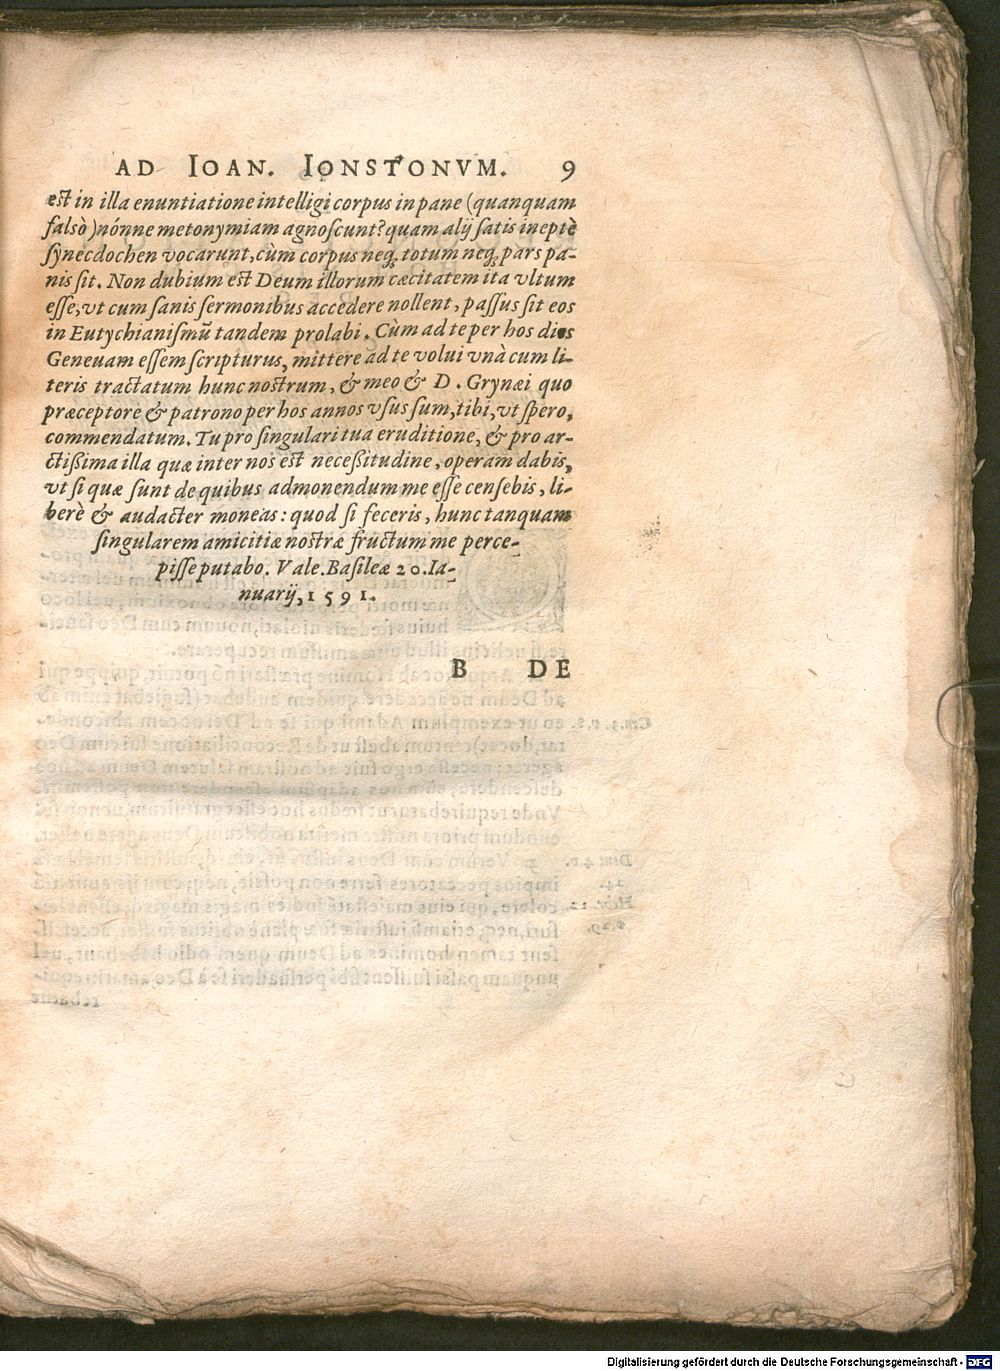 AD IOAN. IONSTONVM. 9
est in illa enuntiatione intelligi corpus in pane (quanquam
falsò) nónne metonymiam agnoscunt? quam alij satis ineptè
synecdochen vocarunt, cùm corpus neq; totum neq; pars pa-
nis sit. Non dubium est Deum illorum cæcitatem ita vltum
esse, vt cum sanis sermonibus accedere nollent, passus sit eos
in Eutychianismũ tandem prolabi. Cùm ad te per hos dies
Geneuam essem scripturus, mittere ad te volui vnà cum li-
teris tractatum hunc nostrum, & meo & D. Grynæi quo
præceptore & patrono per hos annos vsus sum, tibi, vt spero,
commendatum. Tu pro singulari tua eruditione, & pro ar-
ctißima illa quæ inter nos est neceßitudine, operam dabis,
vt si quæ sunt de quibus admonendum me esse censebis, li-
berè & audacter moneas: quod si feceris, hunc tanquam
singularem amicitiæ nostræ fructum me perce-
pisse putabo. Vale. Basileæ 20. Ia-
nuarij, 1591.
B DE
Digitalisierung gefördert durch die Deutsche Forschungsgemeinschaft - DFG